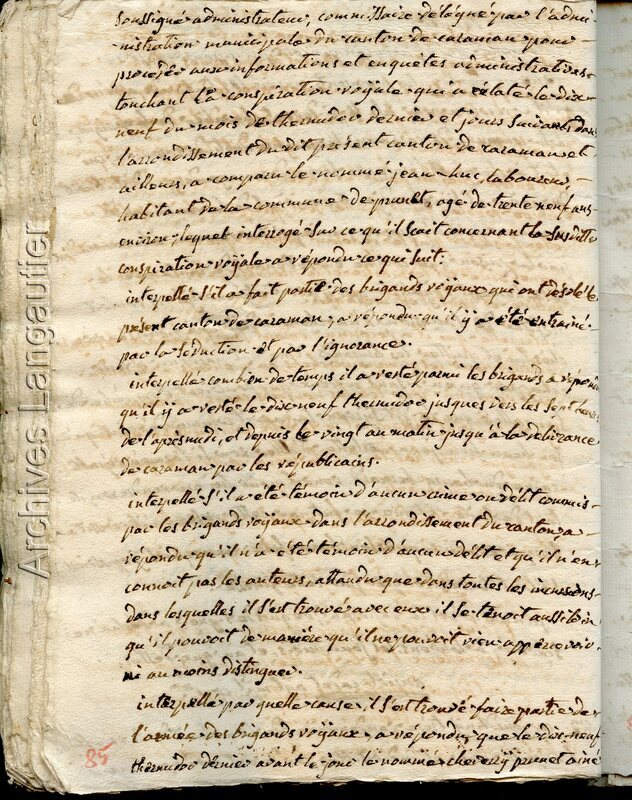 soussigné administrateur, commissaire délégué par l'admi-
nistration municipale du canton de caraman pour
procéder aux informations et enquêtes administratives
touchant la conspiration royale qui a éclaté le dix-
neuf du mois de thermidor dernier et jours suivants dans
l'arrondissement du dit présent canton de caraman et
ailleurs, a comparu le nommé jean
habitant de la commune de prunet, agé de trente neuf ans
environ, lequel interrogé sur ce qu'il scait concernant la susditte
conspiration royale a répondu ce qui suit.
interpellé s'il a fait partie des brigands royaux qui ont désolé le
présent canton de caraman, a répondu qu'il y a été entrainé
par la séduction et par l'ignorance.
interpellé combien de temps il a resté parmi les brigands a répondu
qu'il y a resté le dix neuf thermidor jusques vers les sept heures
de l'après midi, et depuis le vingt au matin jusqu'à la délivrance
de caraman par les républicains.
interpellé s'il a été témoin d'aucun crime ou délit commis
par les brigands royaux dans l'arrondissement du canton, a
répondu qu'il n'a été témoin d'aucun délit et qu'il n'en
connoit pas les auteurs, attandu que dans toutes les incursions
dans lesquelles il s'est trouvé avec eux il se tenoit aussi loin
qu'il pouvoit de manière qu'il ne pouvoit rien appercevoir
ni au moins distinguer.
interpellé par quelle cause, il s'est trouvé faire partie de
l'armée des brigands royaux, a répondu que le dix-neuf
thermidor dernier avant le jour le nommé prunet ainé
85
Archives Langautier